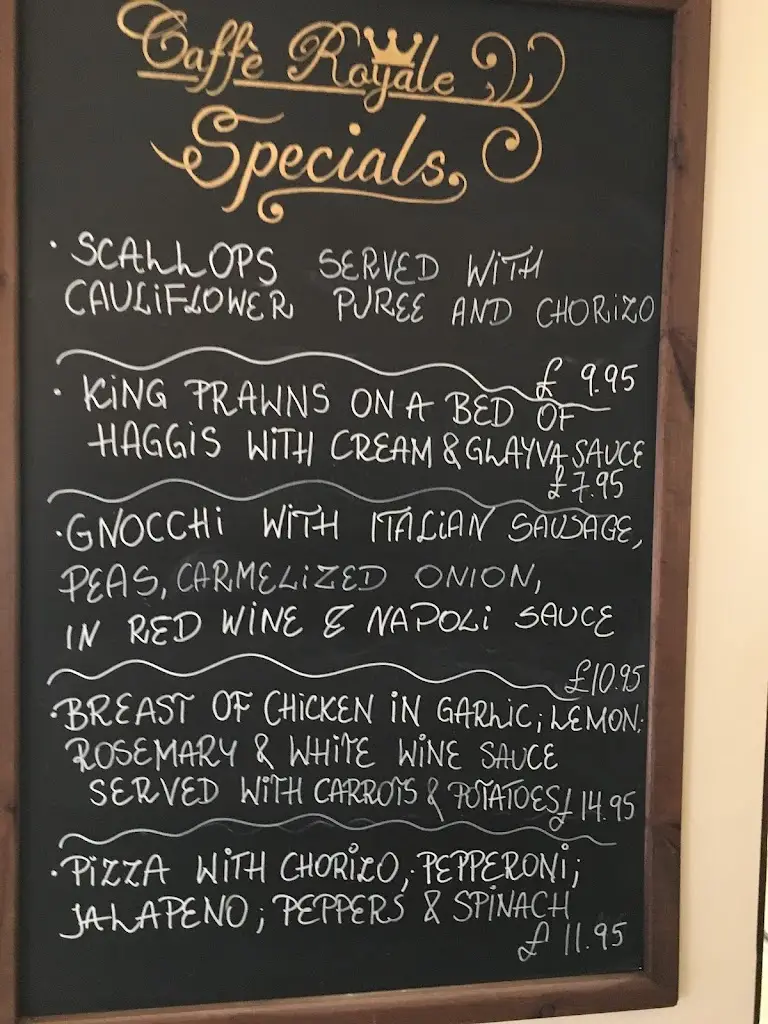 Caffè Royale
Specials.
· SCALLOPS SERVED WITH
CAULIFLOWER PUREE AND CHORIZO
£ 9.95
· KING PRAWNS ON A BED OF
HAGGIS WITH CREAM & GLAYVA SAUCE
£7.95
· GNOCCHI WITH ITALIAN SAUSAGE,
PEAS, CARMELIZED ONION,
IN RED WINE & NAPOLI SAUCE
£10.95
· BREAST OF CHICKEN IN GARLIC; LEMON;
ROSEMARY & WHITE WINE SAUCE
SERVED WITH CARROTS & POTATOES £14.95
· PIZZA WITH CHORIZO; PEPPERONI;
JALAPENO; PEPPERS & SPINACH
£ 11.95